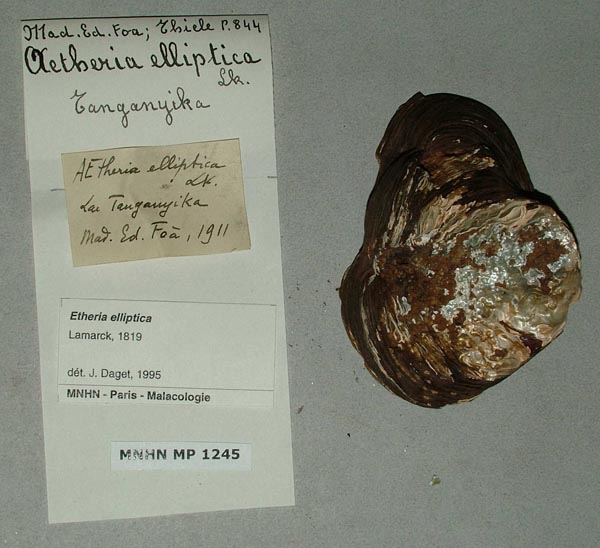 Mad. Ed. Foa; Thiele P. 844
Aetheria elliptica
Lk.
Tanganyika
AEtheria elliptica
Lk.
Lac Tanganyika
Mad. Ed. Foà, 1911
Etheria elliptica
Lamarck, 1819
dét. J. Daget, 1995
MNHN - Paris - Malacologie
MNHN MP 1245